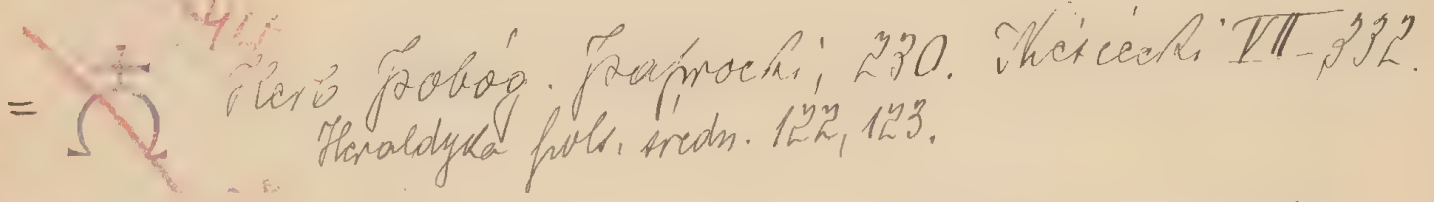 = Herb Pobóg. Paprocki, 230. Niesiecki VII-332.
Heraldyka pols. średn. 122, 123.